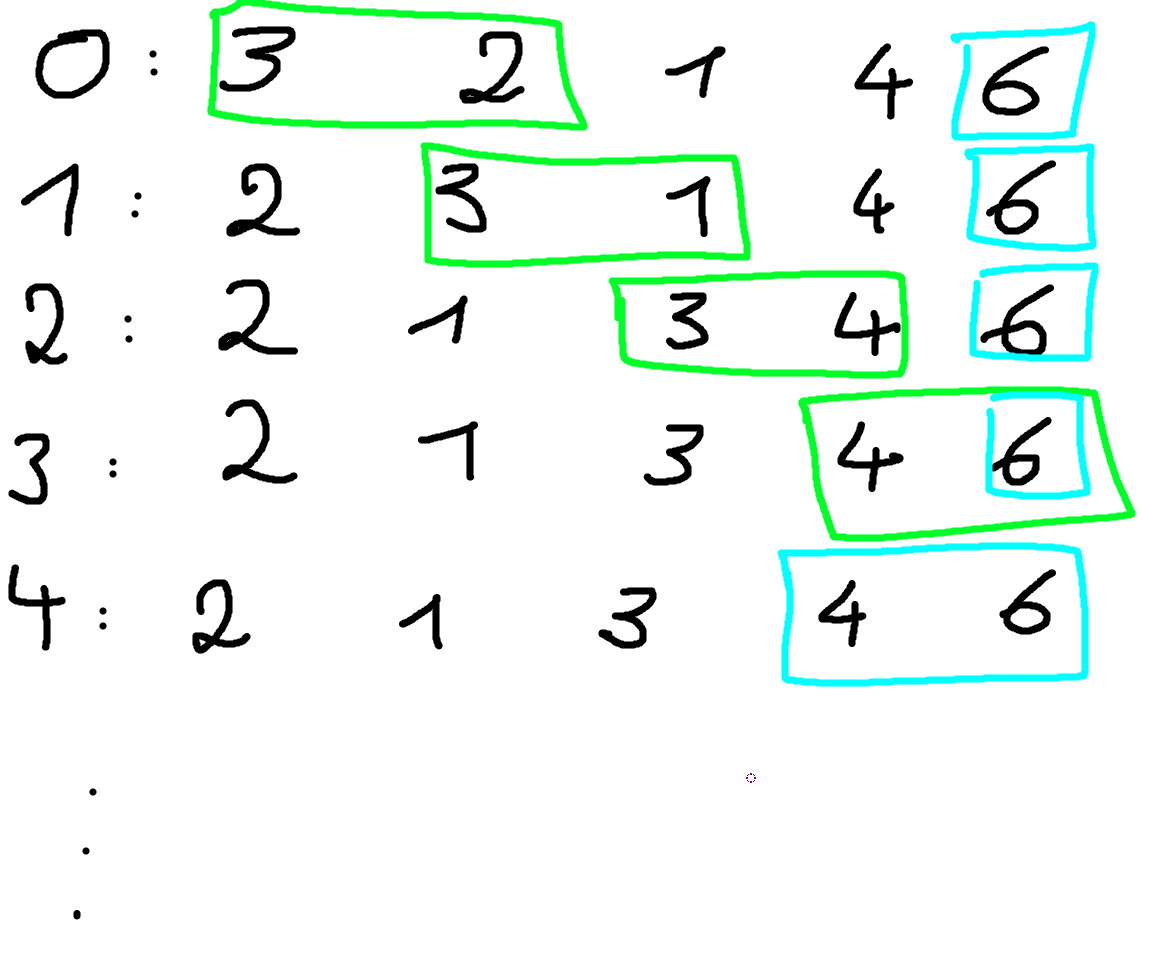 0: 3 2 1 4 6
1: 2 3 1 4 6
2: 2 1 3 4 6
3: 2 1 3 4 6
4: 2 1 3 4 6
.
.
.